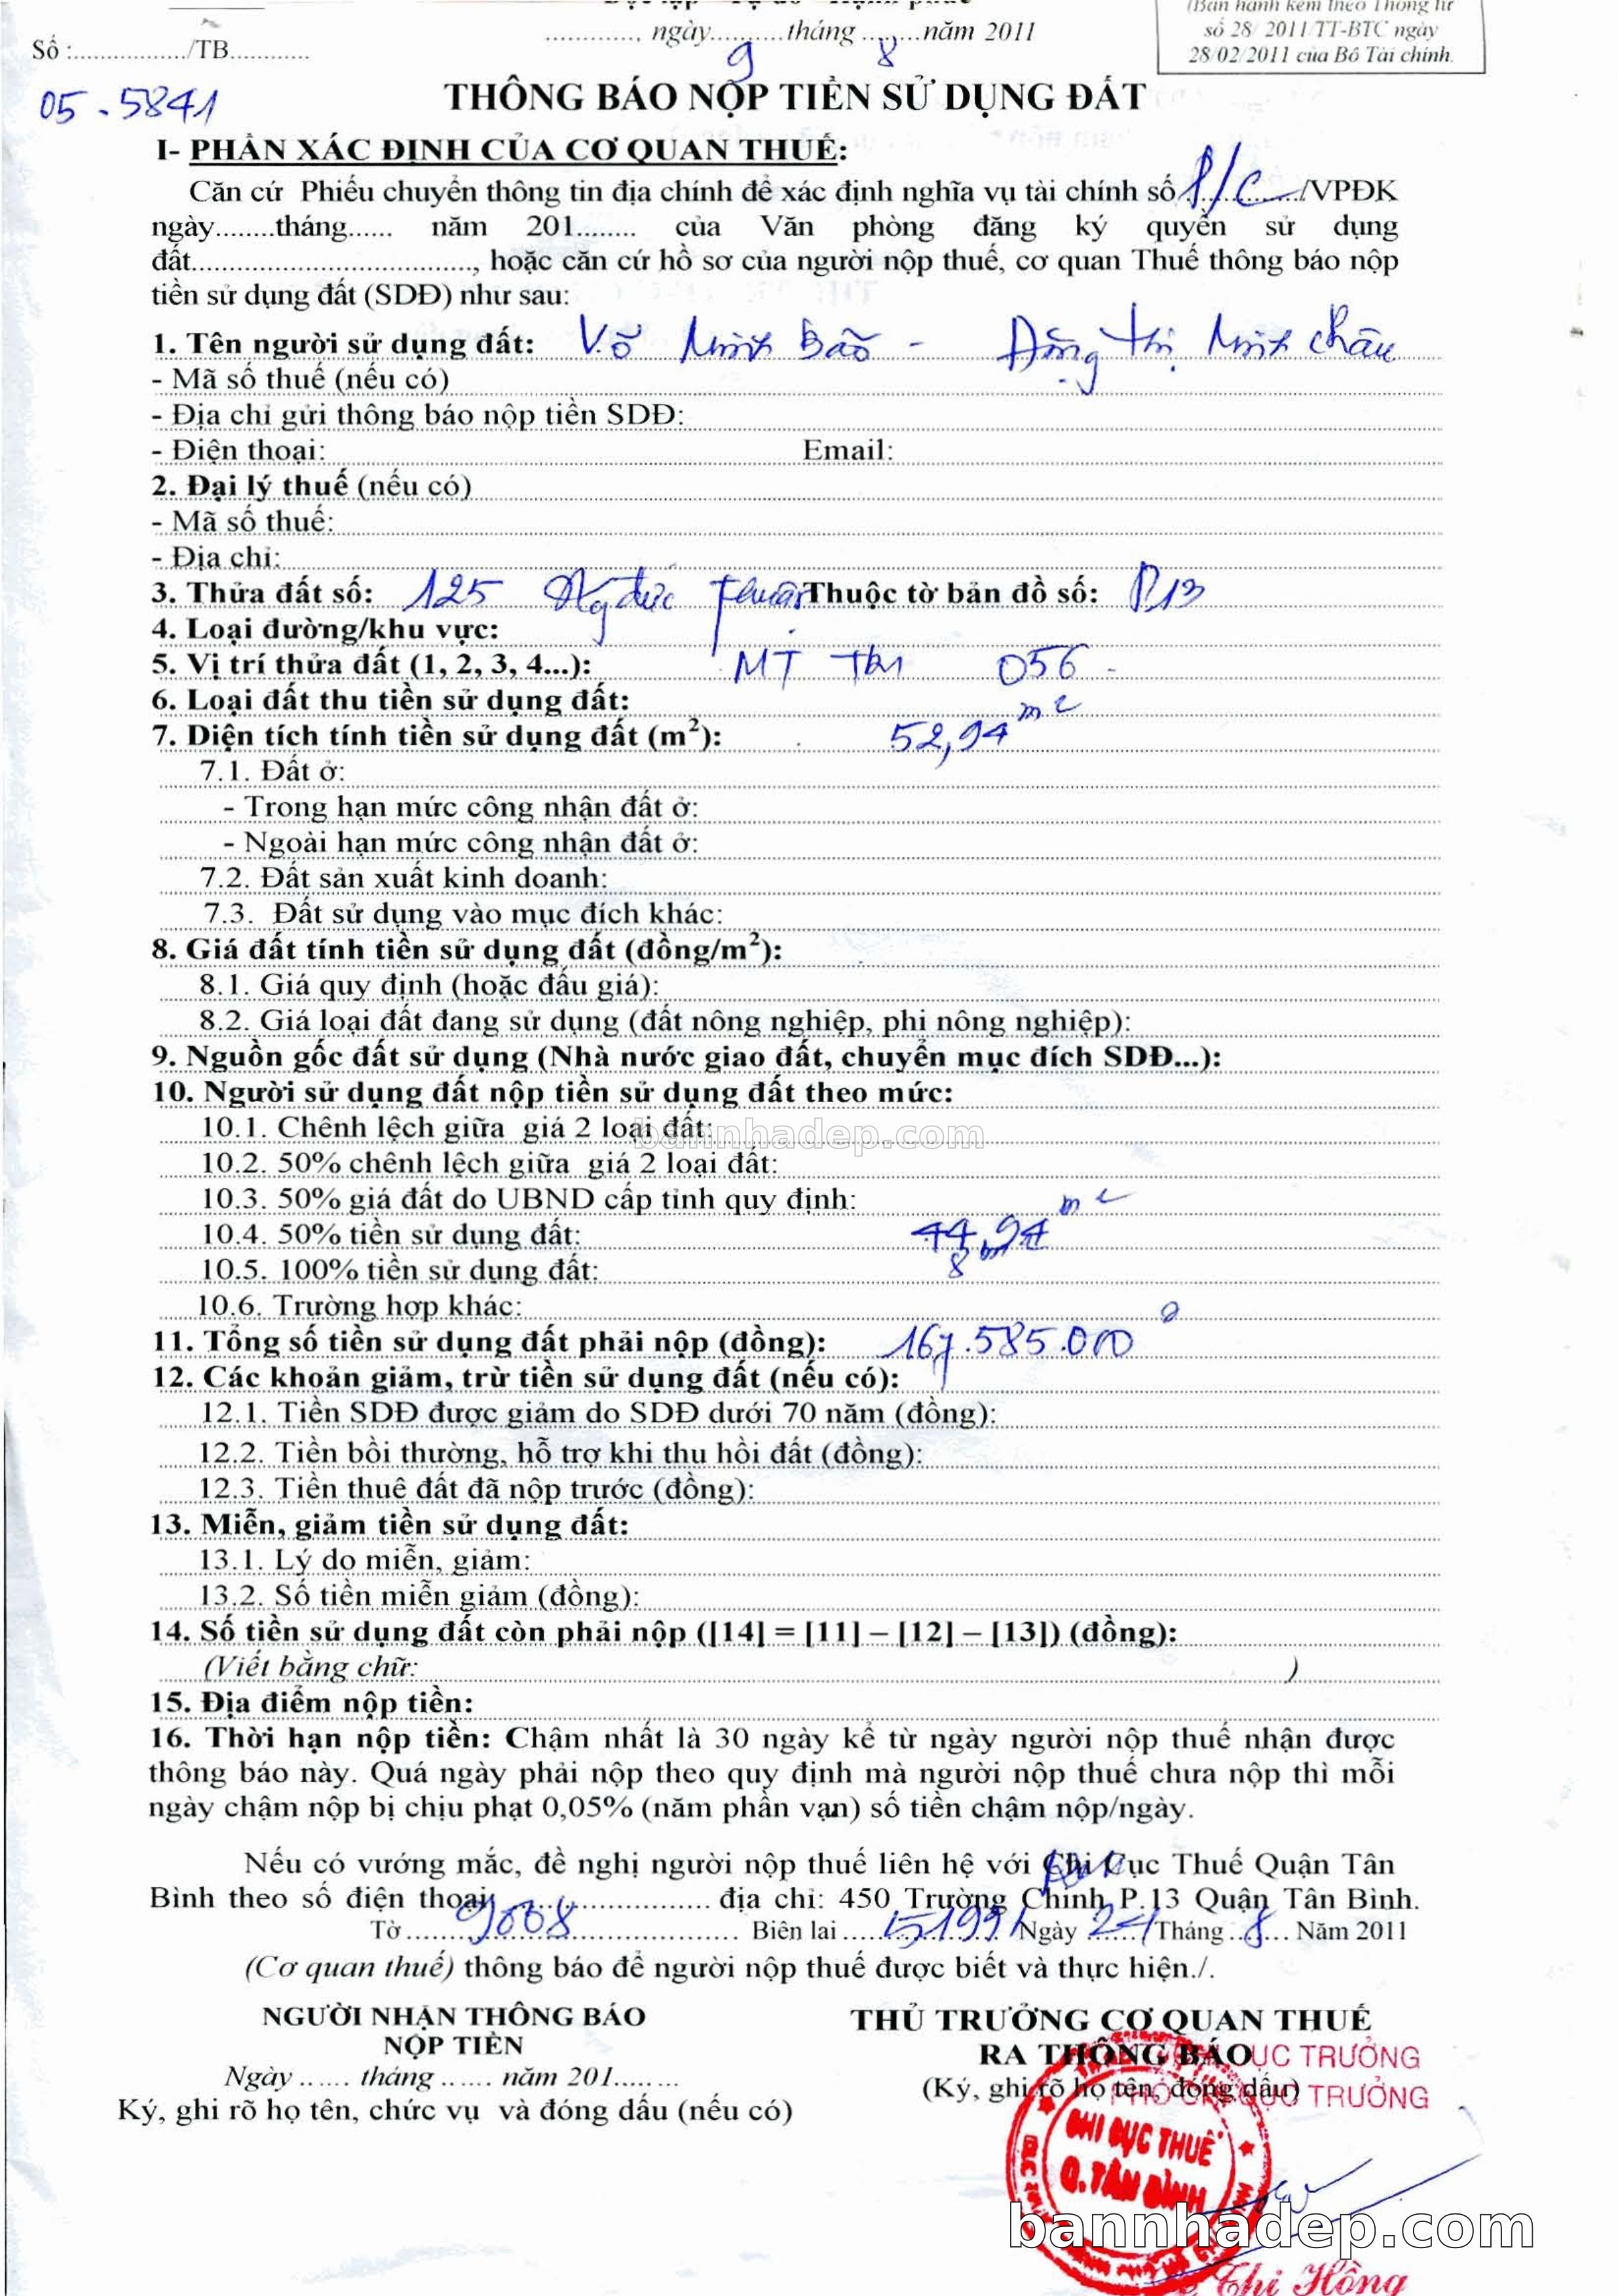 (Ban hành kèm theo Thông tư
............., ngày...........tháng .........năm 2011
số 28/ 2011/TT-BTC ngày
Số :................./TB............
28/02/2011 của Bộ Tài chính.
9 8
05 - 5841
THÔNG BÁO NỘP TIỀN SỬ DỤNG ĐẤT
I- PHẦN XÁC ĐỊNH CỦA CƠ QUAN THUẾ:
Căn cứ Phiếu chuyển thông tin địa chính để xác định nghĩa vụ tài chính số P/C /VPĐK
ngày........tháng...... năm 201........ của Văn phòng đăng ký quyền sử dụng
đất...................................., hoặc căn cứ hồ sơ của người nộp thuế, cơ quan Thuế thông báo nộp
tiền sử dụng đất (SDĐ) như sau:
1. Tên người sử dụng đất: Võ Minh Bảo - Đặng Thị Minh Châu
- Mã số thuế (nếu có)
- Địa chỉ gửi thông báo nộp tiền SDĐ:
- Điện thoại: Email:
2. Đại lý thuế (nếu có)
- Mã số thuế:
- Địa chỉ:
3. Thửa đất số: 125 Ng đức Thuận Thuộc tờ bản đồ số: P13
4. Loại đường/khu vực:
5. Vị trí thửa đất (1, 2, 3, 4...): MT 056 -
6. Loại đất thu tiền sử dụng đất:
7. Diện tích tính tiền sử dụng đất (m²): 52,94 m²
7.1. Đất ở:
- Trong hạn mức công nhận đất ở:
- Ngoài hạn mức công nhận đất ở:
7.2. Đất sản xuất kinh doanh:
7.3. Đất sử dụng vào mục đích khác:
8. Giá đất tính tiền sử dụng đất (đồng/m²):
8.1. Giá quy định (hoặc đấu giá):
8.2. Giá loại đất đang sử dụng (đất nông nghiệp, phi nông nghiệp):
9. Nguồn gốc đất sử dụng (Nhà nước giao đất, chuyển mục đích SDĐ...):
10. Người sử dụng đất nộp tiền sử dụng đất theo mức:
10.1. Chênh lệch giữa giá 2 loại đất:
bannhadep.com
10.2. 50% chênh lệch giữa giá 2 loại đất:
10.3. 50% giá đất do UBND cấp tỉnh quy định:
10.4. 50% tiền sử dụng đất: 44,94 m²
10.5. 100% tiền sử dụng đất: 8 m²
10.6. Trường hợp khác:
11. Tổng số tiền sử dụng đất phải nộp (đồng): 167.585.000 đ
12. Các khoản giảm, trừ tiền sử dụng đất (nếu có):
12.1. Tiền SDĐ được giảm do SDĐ dưới 70 năm (đồng):
12.2. Tiền bồi thường, hỗ trợ khi thu hồi đất (đồng):
12.3. Tiền thuê đất đã nộp trước (đồng):
13. Miễn, giảm tiền sử dụng đất:
13.1. Lý do miễn, giảm:
13.2. Số tiền miễn giảm (đồng):
14. Số tiền sử dụng đất còn phải nộp ([14] = [11] – [12] – [13]) (đồng):
(Viết bằng chữ: )
15. Địa điểm nộp tiền:
16. Thời hạn nộp tiền: Chậm nhất là 30 ngày kể từ ngày người nộp thuế nhận được
thông báo này. Quá ngày phải nộp theo quy định mà người nộp thuế chưa nộp thì mỗi
ngày chậm nộp bị chịu phạt 0,05% (năm phần vạn) số tiền chậm nộp/ngày.
Nếu có vướng mắc, đề nghị người nộp thuế liên hệ với Chi Cục Thuế Quận Tân
Bình theo số điện thoại........................ địa chỉ: 450 Trường Chinh P.13 Quận Tân Bình.
Tờ 9008 Biên lai Ngày Tháng 8 Năm 2011
(Cơ quan thuế) thông báo để người nộp thuế được biết và thực hiện./.
NGƯỜI NHẬN THÔNG BÁO THỦ TRƯỞNG CƠ QUAN THUẾ
NỘP TIỀN RA THÔNG BÁO CỤC TRƯỞNG
Ngày ...... tháng ...... năm 201........ (Ký, ghi rõ họ tên, đóng dấu)
PHÓ CHI CỤC TRƯỞNG
Ký, ghi rõ họ tên, chức vụ và đóng dấu (nếu có)
CHI CỤC THUẾ
Q. TÂN BÌNH
bannhadep.com
Thị Hồng